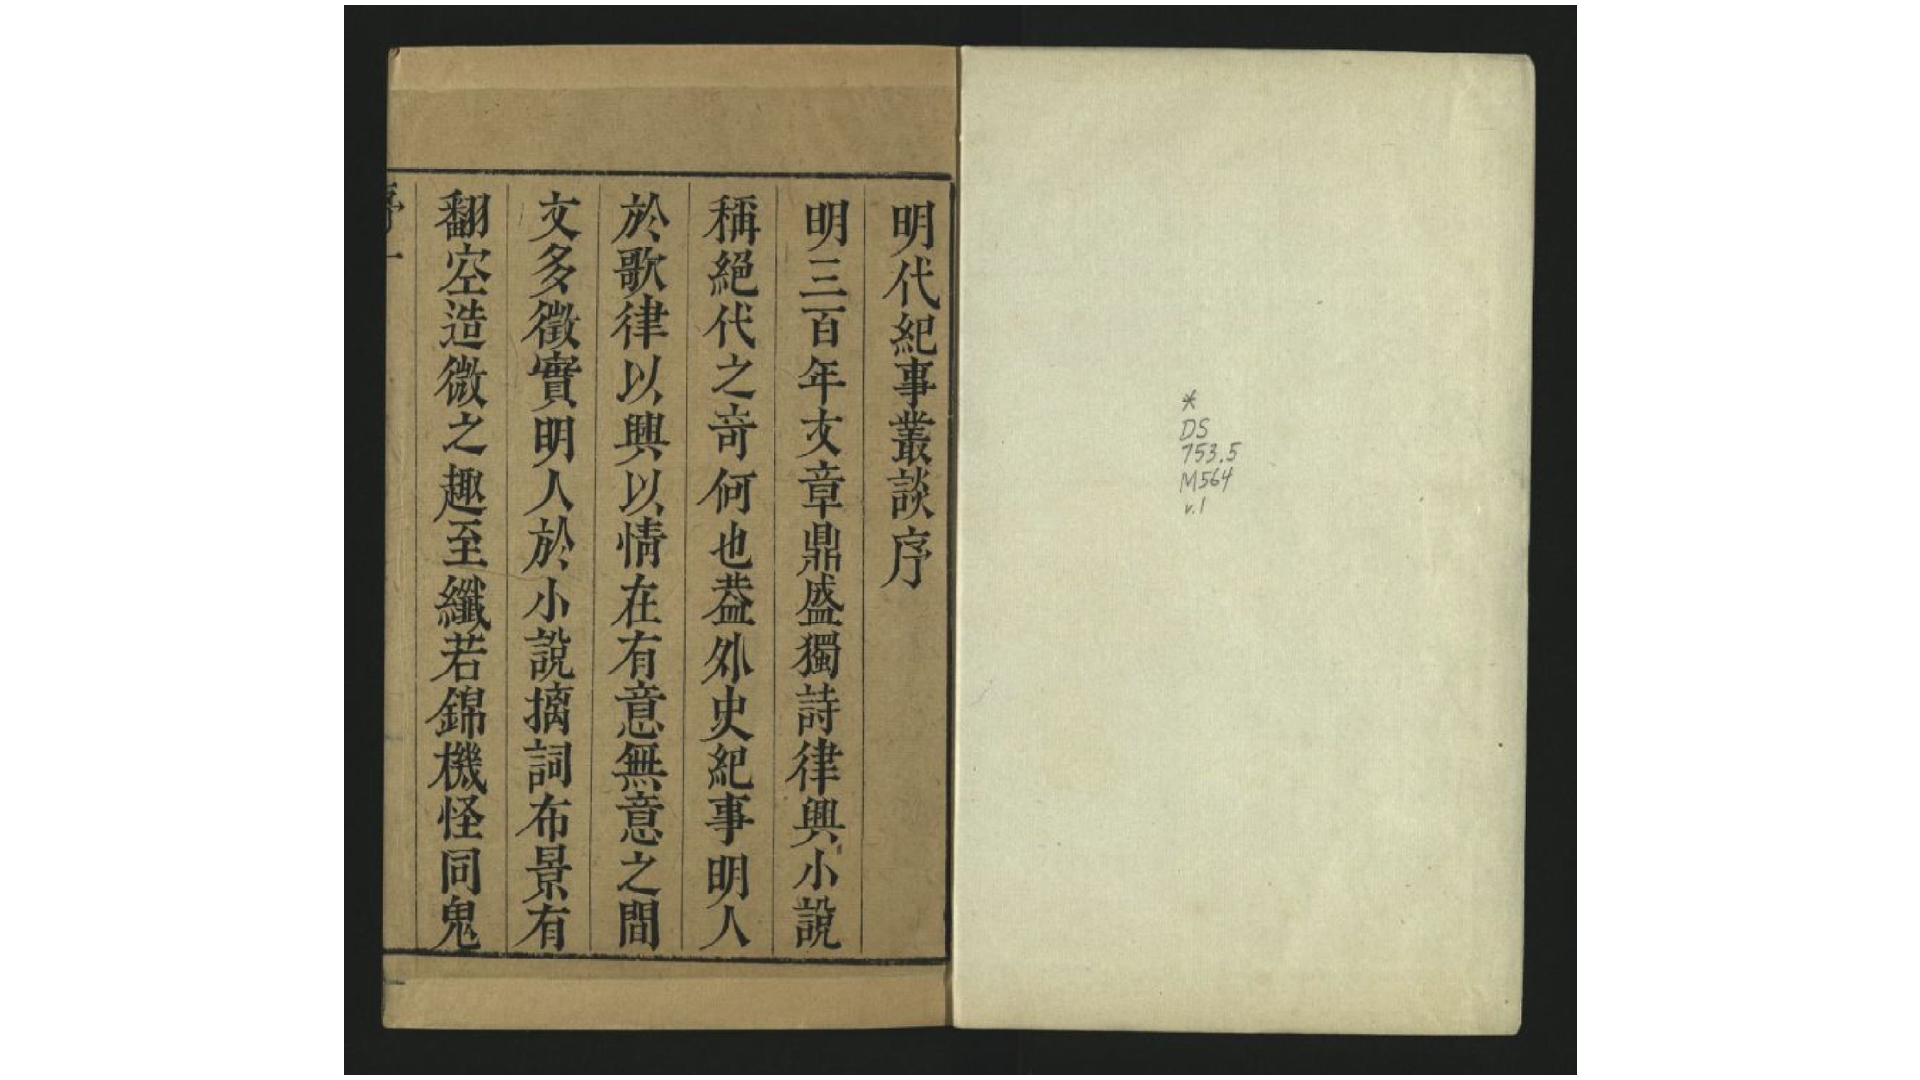 *
DS
753.5
M564
v.1
明代紀事叢談序
明三百年文章鼎盛獨詩律與小說
稱絕代之竒何也葢外史紀事明人
於歌律以興以情在有意無意之間
文多徵實明人於小說摛詞布景有
翻空造微之趣至纖若錦機怪同鬼
序一